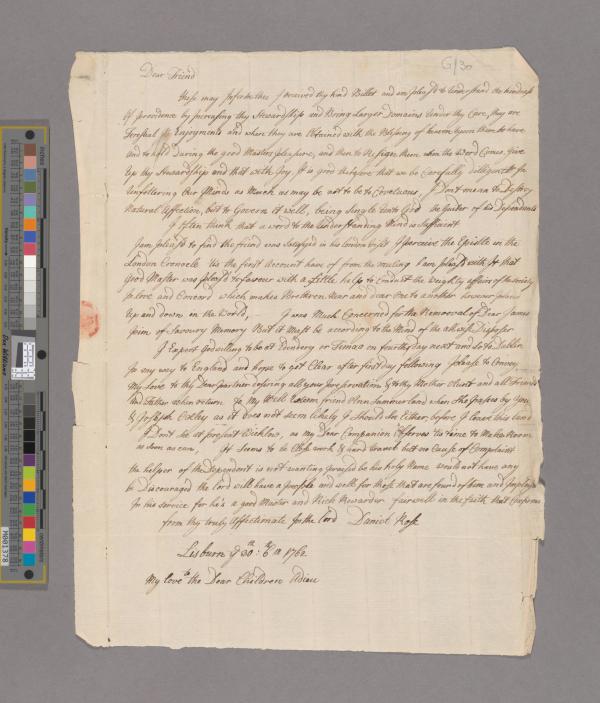 G/30
Dear Friend
these may Inform thee I received thy kind Billet and am pleas'd to understand the kindness
Of providence by increasing thy Stewardship and Bring Larger Domains Under thy Care, they are
Terestial Enjoyments and when they are Obtained with the Blessing of heaven upon them to have
and to hold During the good Masters pleasure, and then to Resign them when the word Comes Give
Up thy Stewardship and that with Joy, It is good therefore that we be Carefully dilligent In
unfettering Our Minds as Much as may be not to be to Coveteous, I Dont mean to Destroy
Natural Affection, but to Govern it well, being Single unto God the Guider of his Dependants
I often think that a word to the Understanding Mind is Sufficient
I am pleas'd to find the friend was Satisfied in his London visit I perceive the Epistle in the
London Cronacle tis the first account have of from the meeting I am pleas'd with It that
Good Master was pleas'd to favour with a little help to Conduct the weighty affairs of the Society
In love and Concord which makes Brethren Near and dear One to another however
up and down in the World, I was Much Concerned for the Removal of Dear James
of Savoury Memory But it Must be according to the Mind of the allwise Disposer
I Expect God willing to be at Edendery or Timao on fourth day next and so to Dublin
In my way to England and hope to get Clear after first day following please to Convey
My love to thy Dear partner desiring all your preservation & to thy Mother Aunt and all Friends
and Father when return to My Well Esteem friend when she passes by you
& Joseph Oxley as it does not seem likely I should See Either before I leave this land
I Dont See at present Wicklow, as my Dear Companion Observes tis time to Make Room
as soon as can, It Seems to be Close work & hard travel but no Cause of Complaint
the helper of the Dependent is not wanting praised be his Holy Name would not have any
be Discouraged the Lord will have a people and well for those that are found of him and Imployed
In the service for he's a good Master and Rich Rewarder farewell in the faith that
from thy truly Affectionate In the Lord Daniel Rose
Lisburn ye 30th: 6th m 1762
My love to the Dear Children Adieu